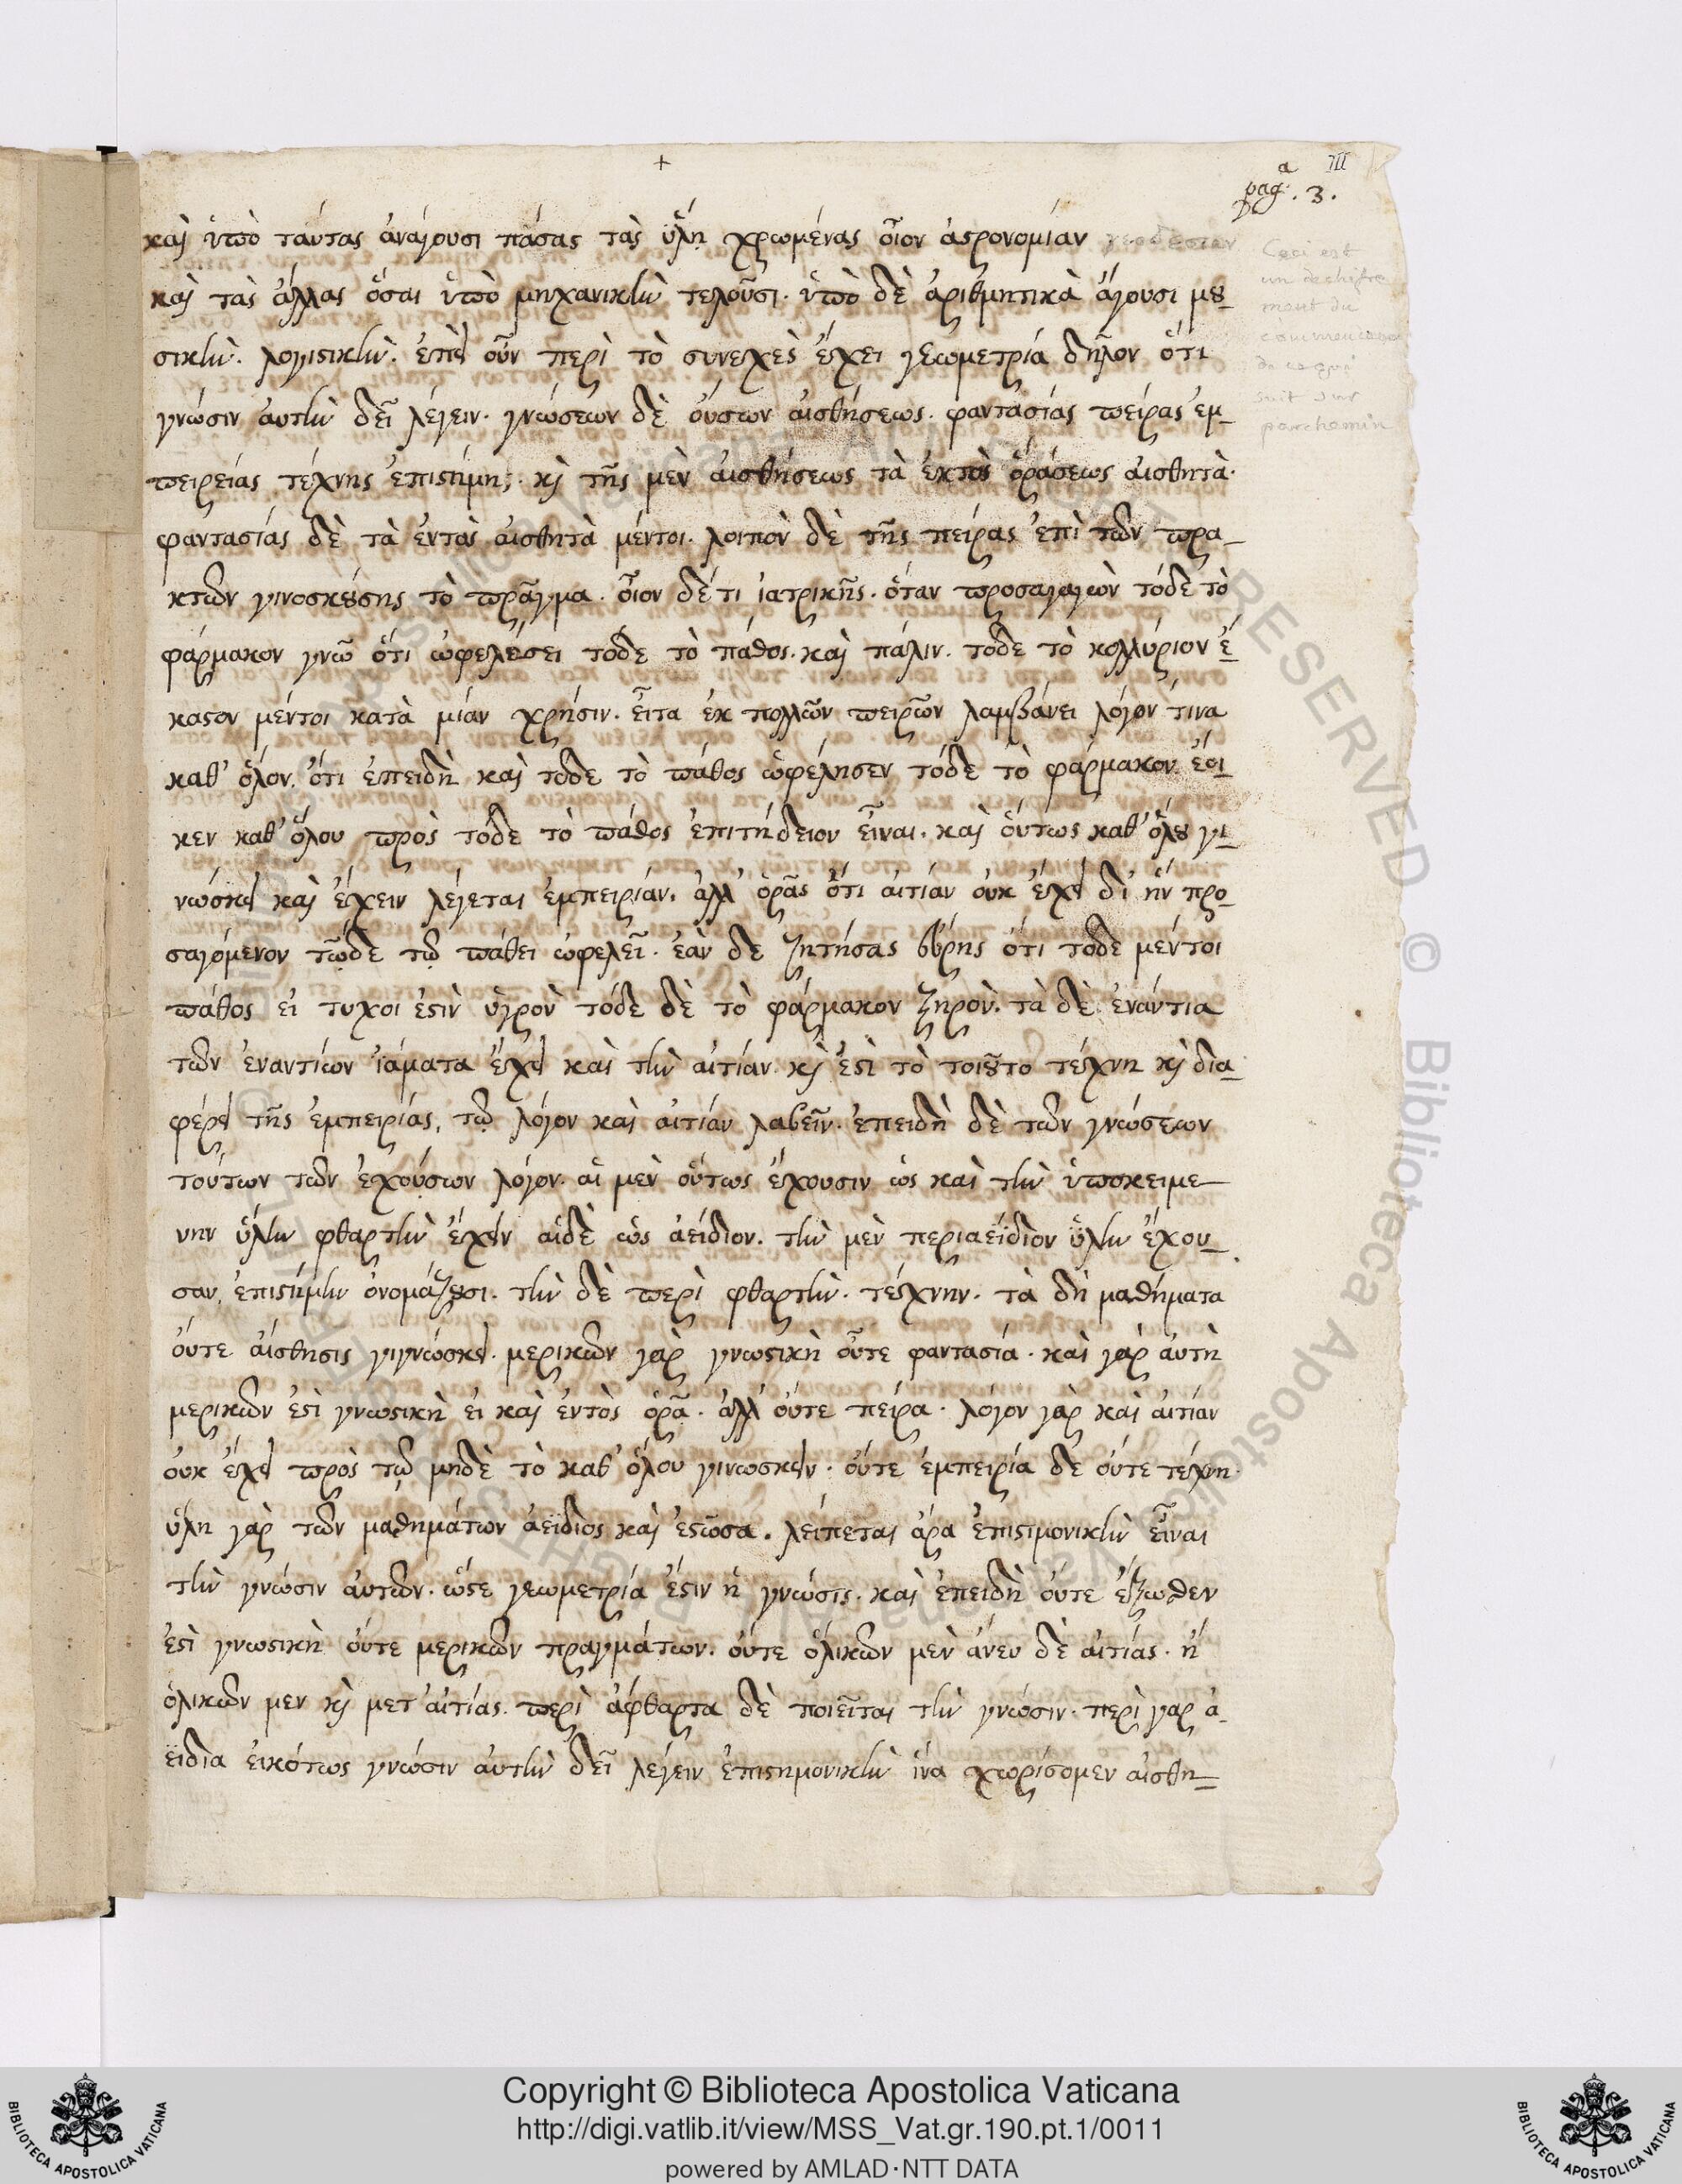 +
pagᵃ. 3.
III
καὶ ὑπὸ ταύτας ἀνάγουσι πάσας τὰς ὕλῃ χρωμένας οἷον ἀστρονομίαν γεοδεσίαν
καὶ τὰς ἄλλας ὅσαι ὑπὸ μηχανικὴν τελοῦσι. ὑπὸ δὲ ἀριθμητικὰ ἄγουσι μȣ-
σικὴν. λογιστικὴν. ἐπεὶ οὖν περὶ τὸ συνεχὲς ἔχει γεωμετρία δῆλον ὅτι
γνῶσιν ἀυτὴν δεῖ λέγειν. γνώσεων δὲ ὀύσων ἀισθήσεως. φαντασίας πείρας ἐμ-
πειρείας τέχνης ἐπιστήμης. κὶ τῆς μὲν ἀισθήσεως τὰ ἐκτὸς ὁράσεως ἀισθητὰ.
φαντασίας δὲ τὰ ἐντὸς ἀισθητὰ μέντοι. λοιπὸν δὲ τῆς πείρας ἐπὶ τῶν πρα-
κτῶν γινοσκȣσης τὸ πρᾶγμα. οἷον δέ τι ἰατρικῆς. ὅταν προσαγαγὼν τόδε τὸ
φάρμακον γνῶ ὅτι ὠφελέσει τόδε τὸ πάθος. καὶ πάλιν. τόδε τὸ κολλύριον ἕ-
καστον μέντοι κατὰ μίαν χρήσιν. εἶτα ἐκ πολλῶν πειρῶν λαμβάνει λόγον τινα
καθ' ὅλον. ὅτι ἐπειδὴ καὶ τόδε τὸ πάθος ὠφέλησεν τόδε τὸ φάρμακον ἔοι-
κεν καθ' ὅλου πρὸς τόδε τὸ πάθος ἐπιτήδειον εἶναι. καὶ ὅυτως καθ' ὅλȣ γι-
νώσκει καὶ ἔχειν λέγεται ἐμπειρίαν. ἀλλ' ὁρᾶς ὅτι αἰτίαν ὀυκ ἔχει δι' ἣν προ-
σαγόμενον τῷδε τῷ πάθει ὠφελεῖ. ἐὰν δε ζητήσας εὕρης ὅτι τόδε μέντοι
πάθος εἰ τυχοι ἐστὶν ὑγρὸν τόδε δὲ τὸ φάρμακον ξηρὸν. τὰ δὲ ἐνάντια
τῶν ἐναντίων ἰάματα ἔχει καὶ τὴν ἀιτίαν. κὶ ἐστὶ τὸ τοιȣτο τέχνη κὶ δια-
φέρει τῆς ἐμπειρίας, τῷ λόγον καὶ ἀιτίαν λαβεῖν. ἐπειδὴ δὲ τῶν γνώσεων
τούτων τῶν ἐχούσων λόγον. αἱ μὲν οὕτως ἔχουσιν ὡς καὶ τὴν ὑποκειμε-
νην ὕλην φθαρτὴν ἔχειν ἁιδὲ ὡς ἀείδιον. τὴν μὲν περιαείδιον ὕλην ἔχου-
σαν ἐπιστήμην ὀνομάζȣσι. τὴν δὲ περὶ φθαρτὴν. τέχνην. τὰ δὴ μαθήματα
ὀύτε ἀίσθησις γιγνώσκει. μερικῶν γὰρ γνωστικὴ οὔτε φαντασία. καὶ γὰρ ἀυτὴ
μερικῶν ἐστὶ γνωστικὴ ἐι καὶ ἐντὸς ὁρᾶ. ἀλλ' ὀύτε πείρα. λόγον γὰρ καὶ ἀιτίαν
ὀυκ ἔχει πρὸς τῷ μηδὲ τὸ καθ' ὅλου γινωσκειν. ὀύτε ἐμπειρία δε ὀύτε τέχνη.
ὕλη γαρ τῶν μαθημάτων ἀείδιος καὶ ἑστῶσα. λείπεται ἄρα ἐπιστιμονικὴν εἶναι
τὴν γνώσιν ἀυτῶν. ὥστε γεωμετρία ἔστιν ἡ γνώσις. καὶ ἐπειδὴ ὀύτε ἔξωθεν
ἐστὶ γνωστικὴ ὀύτε μερικῶν πραγμάτων. ὀύτε ὁλικῶν μὲν ἄνευ δὲ ἀιτίας. ἢ
ὁλικῶν μεν κὶ μετ' ἀιτίας. περὶ ἄφθαρτα δὲ ποιεῖται τὴν γνώσιν. περὶ γαρ ἀ-
ϊδια ἐικότως γνώσιν ἀυτὴν δεῖ λέγειν ἐπιστημονικὴν ἵνα χωρίσομεν ἀισθη-
Ceci est
un dechifre
ment du
commencement
de ce qui
suit sur
parchemin
Copyright © Biblioteca Apostolica Vaticana
http://digi.vatlib.it/view/MSS_Vat.gr.190.pt.1/0011
powered by AMLAD·NTT DATA
BIBLIOTECA APOSTOLICA VATICANA
BIBLIOTECA APOSTOLICA VATICANA